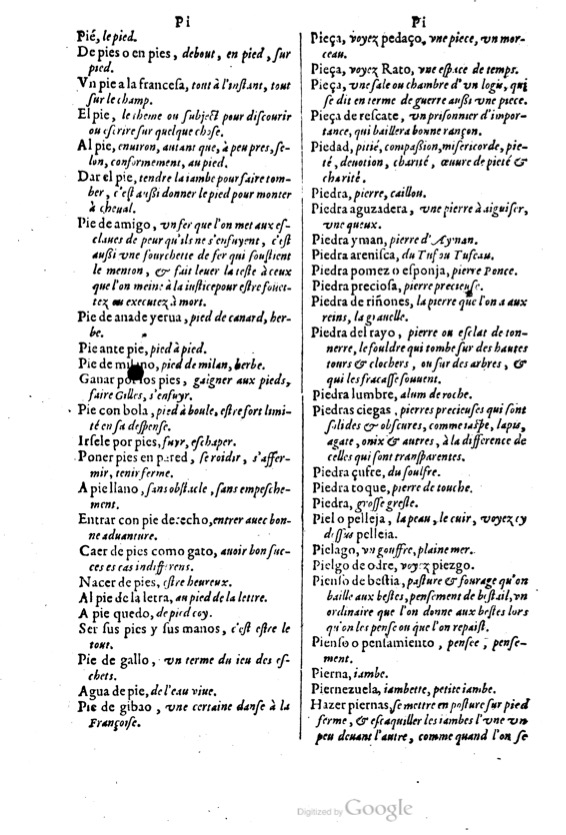 Pi
Pié, le pied.
De pies o en pies, debout, en pied, ſur
pied.
Vn pie a la franceſa, tout à l'inſtant, tout
ſur le champ.
El pie, le theme ou ſubject pour diſcourir
ou eſcrire ſur quelque choſe.
Al pie, enuiron, autant que, à peu pres, ſe-
lon, conformement, au pied.
Dar el pie, tendre la iambe pour faire tom-
ber, c'eſt auſſi donner le pied pour monter
à cheual.
Pie de amigo, vn fer que l'on met aux eſ-
claues de peur qu'ils ne s'enfuyent, c'eſt
auſſi vne fourchette de fer qui ſouſtient
le menton, & fait leuer la teſte à ceux
que l'on meine à la iuſtice pour eſtre fouët-
tez ou executez à mort.
Pie de anade yerua, pied de canard, her-
be.
Pie ante pie, pied à pied.
Pie de milano, pied de milan, herbe.
Ganar por los pies, gaigner aux pieds,
faire Gilles, s'enfuyr.
Pie con bola, pied à boule, eſtre fort limi-
té en ſa deſpenſe.
Irſele por pies, fuyr, eſchaper.
Poner pies en pared, ſe roidir, s'affer-
mir, tenir ferme.
A pie llano, ſans obſtacle, ſans empeſche-
ment.
Entrar con pie derecho, entrer auec bon-
ne aduanture.
Caer de pies como gato, auoir bon ſuc-
ces es cas indifferens.
Nacer de pies, eſtre heureux.
Al pie de la letra, au pied de la lettre.
A pie quedo, de pied coy.
Ser ſus pies y ſus manos, c'eſt eſtre le
tout.
Pie de gallo, vn terme du ieu des eſ-
chets.
Agua de pie, de l'eau viue.
Pie de gibao, vne certaine danſe à la
Françoiſe.
Pi
Pieça, voyez pedaço, vne piece, vn mor-
ceau.
Pieça, voyez Rato, vne eſpace de temps.
Pieça, vne ſale ou chambre d'vn logis, qui
ſe dit en terme de guerre auſſi vne piece.
Pieça de reſcate, vn priſonnier d'impor-
tance, qui baillera bonne rançon.
Piedad, pitié, compaſſion, miſericorde, pie-
té, deuotion, charité, œuure de pieté &
charité.
Piedra, pierre, caillou.
Piedra aguzadera, vne pierre à aiguiſer,
vne queux.
Piedra yman, pierre d'Aynan.
Piedra areniſca, du Tuf ou Tufeau.
Piedra pomez o eſponja, pierre Ponce.
Piedra precioſa, pierre precieuſe.
Piedra de riñones, la pierre que l'on a aux
reins, la grauelle.
Piedra del rayo, pierre ou eſclat de ton-
nerre, le fouldre qui tombe ſur des hautes
tours & clochers, ou ſur des arbres, &
qui les fracaſſe ſouuent.
Piedra lumbre, alum de roche.
Piedras ciegas, pierres precieuſes qui ſont
ſolides & obſcures, comme iaſpe, lapis,
agate, onix & autres, à la difference de
celles qui ſont tranſparentes.
Piedra çufre, du ſoulfre.
Piedra toque, pierre de touche.
Piedra, groſſe greſle.
Piel o pelleja, la peau, le cuir, voyez cy
deſſus pelleia.
Pielago, vn gouffre, plaine mer.
Pielgo de odre, voyez piezgo.
Pienſo de beſtia, paſture & fourage qu'on
baille aux beſtes, penſement de beſtail, vn
ordinaire que l'on donne aux beſtes lors
qu'on les penſe ou que l'on repaiſt.
Pienſo o penſamiento, penſee, penſe-
ment.
Pierna, iambe.
Piernezuela, iambette, petite iambe.
Hazer piernas, ſe mettre en poſture ſur pied
ferme, & eſcaquiller les iambes l'vne vn
peu deuant l'autre, comme quand l'on ſe
Digitized by Google